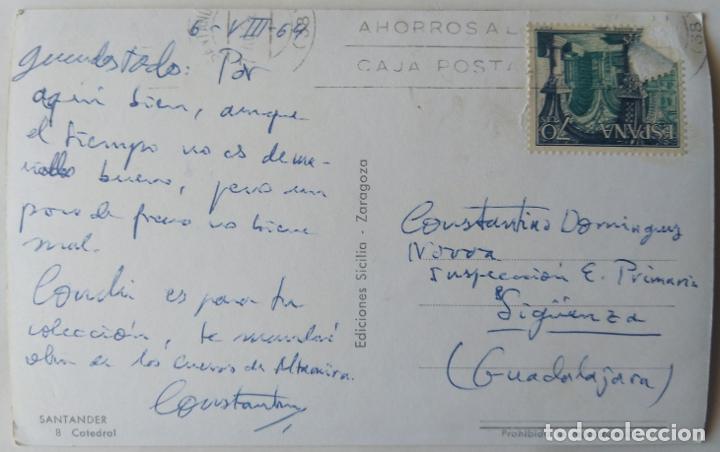 6-VIII-69
Por
aquí bien, aunque
el tiempo no es dema-
bueno, pero un
poco de fresco no viene
mal.
Conchi es para tu
colección, te mandaré
otra de las cuevas de Altamira.
Constantino
SANTANDER
8 Catedral
Ediciones Sicilia - Zaragoza
AHORROS AL
CAJA POSTA
ESPAÑA
70
Constantino Dominguez
Novoa
Inspección E. Primaria
Sigüenza
(Guadalajara)
Prohibi
todocoleccion.net